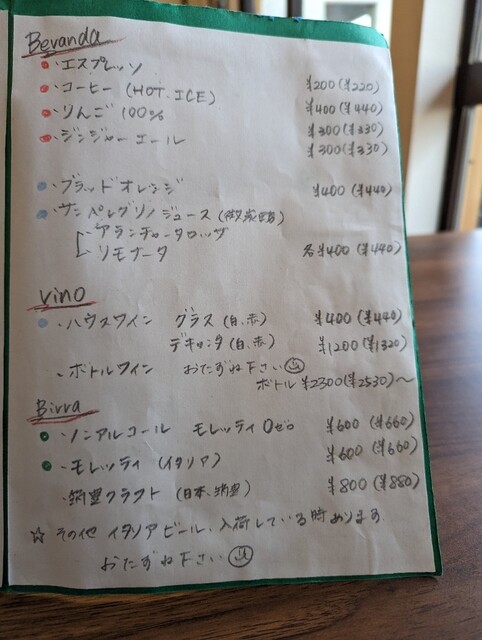 Bevanda
・エスプレッソ ¥200(¥220)
・コーヒー (HOT.ICE) ¥400(¥440)
・りんご 100% ¥300(¥330)
・ジンジャーエール ¥300(¥330)
・ブラッドオレンジ ¥400(¥440)
・サンペレグリノジュース (微炭酸)
アランチャータロッサ
リモナータ 各¥400(¥440)
Vino
・ハウスワイン グラス (白、赤) ¥400(¥440)
デキャンタ (白、赤) ¥1200(¥1320)
・ボトルワイン おたずね下さい
ボトル ¥2300(¥2530)〜
Birra
・ノンアルコール モレッティ 0ゼロ ¥600(¥660)
・モレッティ (イタリア) ¥600(¥660)
クラフト (日本、) ¥800(¥880)
☆ その他 イタリアビール、入荷している時あります
おたずね下さい